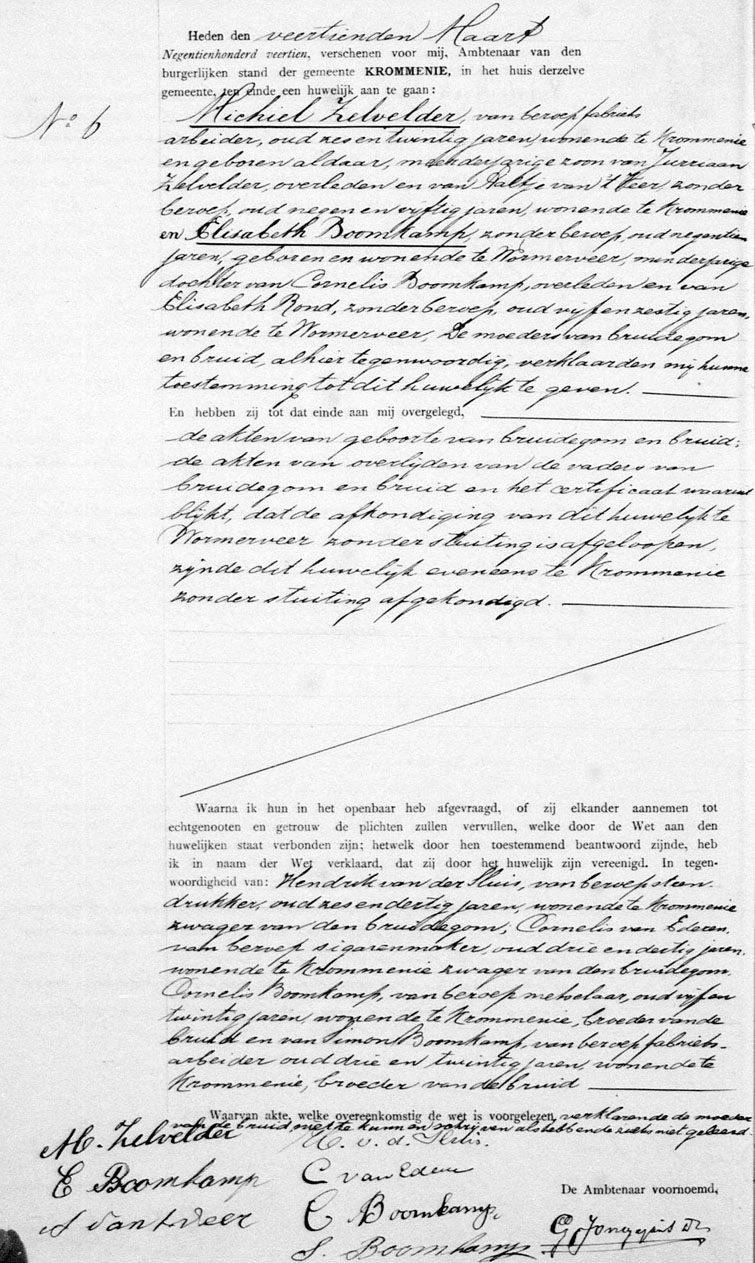 Heden den veertienden Maart
Negentienhonderd veertien, verschenen voor mij, Ambtenaar van den
burgerlijken stand der gemeente KROMMENIE, in het huis derzelve
gemeente, ten einde een huwelijk aan te gaan:
No 6
Michiel Zelvelder, van beroep fabrieks
arbeider, oud zes en twintig jaren, wonende te Krommenie
en geboren aldaar, meerderjarige zoon van Jurriaan
Zelvelder, overleden en van Aaltje van 't Veer, zonder
beroep, oud negen en vijftig jaren, wonende te Krommenie
en Elisabeth Boomkamp, zonder beroep, oud negentien
jaren, geboren en wonende te Wormerveer, minderjarige
dochter van Cornelis Boomkamp, overleden en van
Elisabeth Rond, zonder beroep, oud vijf en zestig jaren,
wonende te Wormerveer, De moeders van bruidegom
en bruid, alhier tegenwoordig, verklaarden mij hunne
toestemming tot dit huwelijk te geven.
En hebben zij tot dat einde aan mij overgelegd,
de akten van geboorte van bruidegom en bruid;
de akten van overlijden van de vaders van
bruidegom en bruid en het certificaat waaruit
blijkt, dat de afkondiging van dit huwelijk te
Wormerveer zonder stuiting is afgeloopen,
zijnde dit huwelijk eveneens te Krommenie
zonder stuiting afgekondigd.
Waarna ik hun in het openbaar heb afgevraagd, of zij elkander aannemen tot
echtgenooten en getrouw de plichten zullen vervullen, welke door de Wet aan den
huwelijken staat verbonden zijn; hetwelk door hen toestemmend beantwoord zijnde, heb
ik in naam der Wet verklaard, dat zij door het huwelijk zijn vereenigd. In tegen-
woordigheid van: Hendrik van der Sluis, van beroep steen
drukker, oud zes en dertig jaren, wonende te Krommenie
zwager van den bruidegom; Cornelis van Ederen,
van beroep sigarenmaker, oud drie en dertig jaren,
wonende te Krommenie zwager van den bruidegom
Cornelis Boomkamp, van beroep metselaar, oud vijf en
twintig jaren, wonende te Krommenie, broeder van de
bruid en van Simon Boomkamp, van beroep fabrieks-
arbeider oud drie en twintig jaren, wonende te
Krommenie, broeder van de bruid
Waarvan akte, welke overeenkomstig de wet is voorgelezen, verklarende de moeder
van de bruid niet te kunnen schrijven als hebbende zulks niet geleerd.
M. Zelvelder
H. v. d. Sluis.
E Boomkamp
C van Ederen
De Ambtenaar voornoemd,
A van t veer
C Boomkamp,
S. Boomkamp